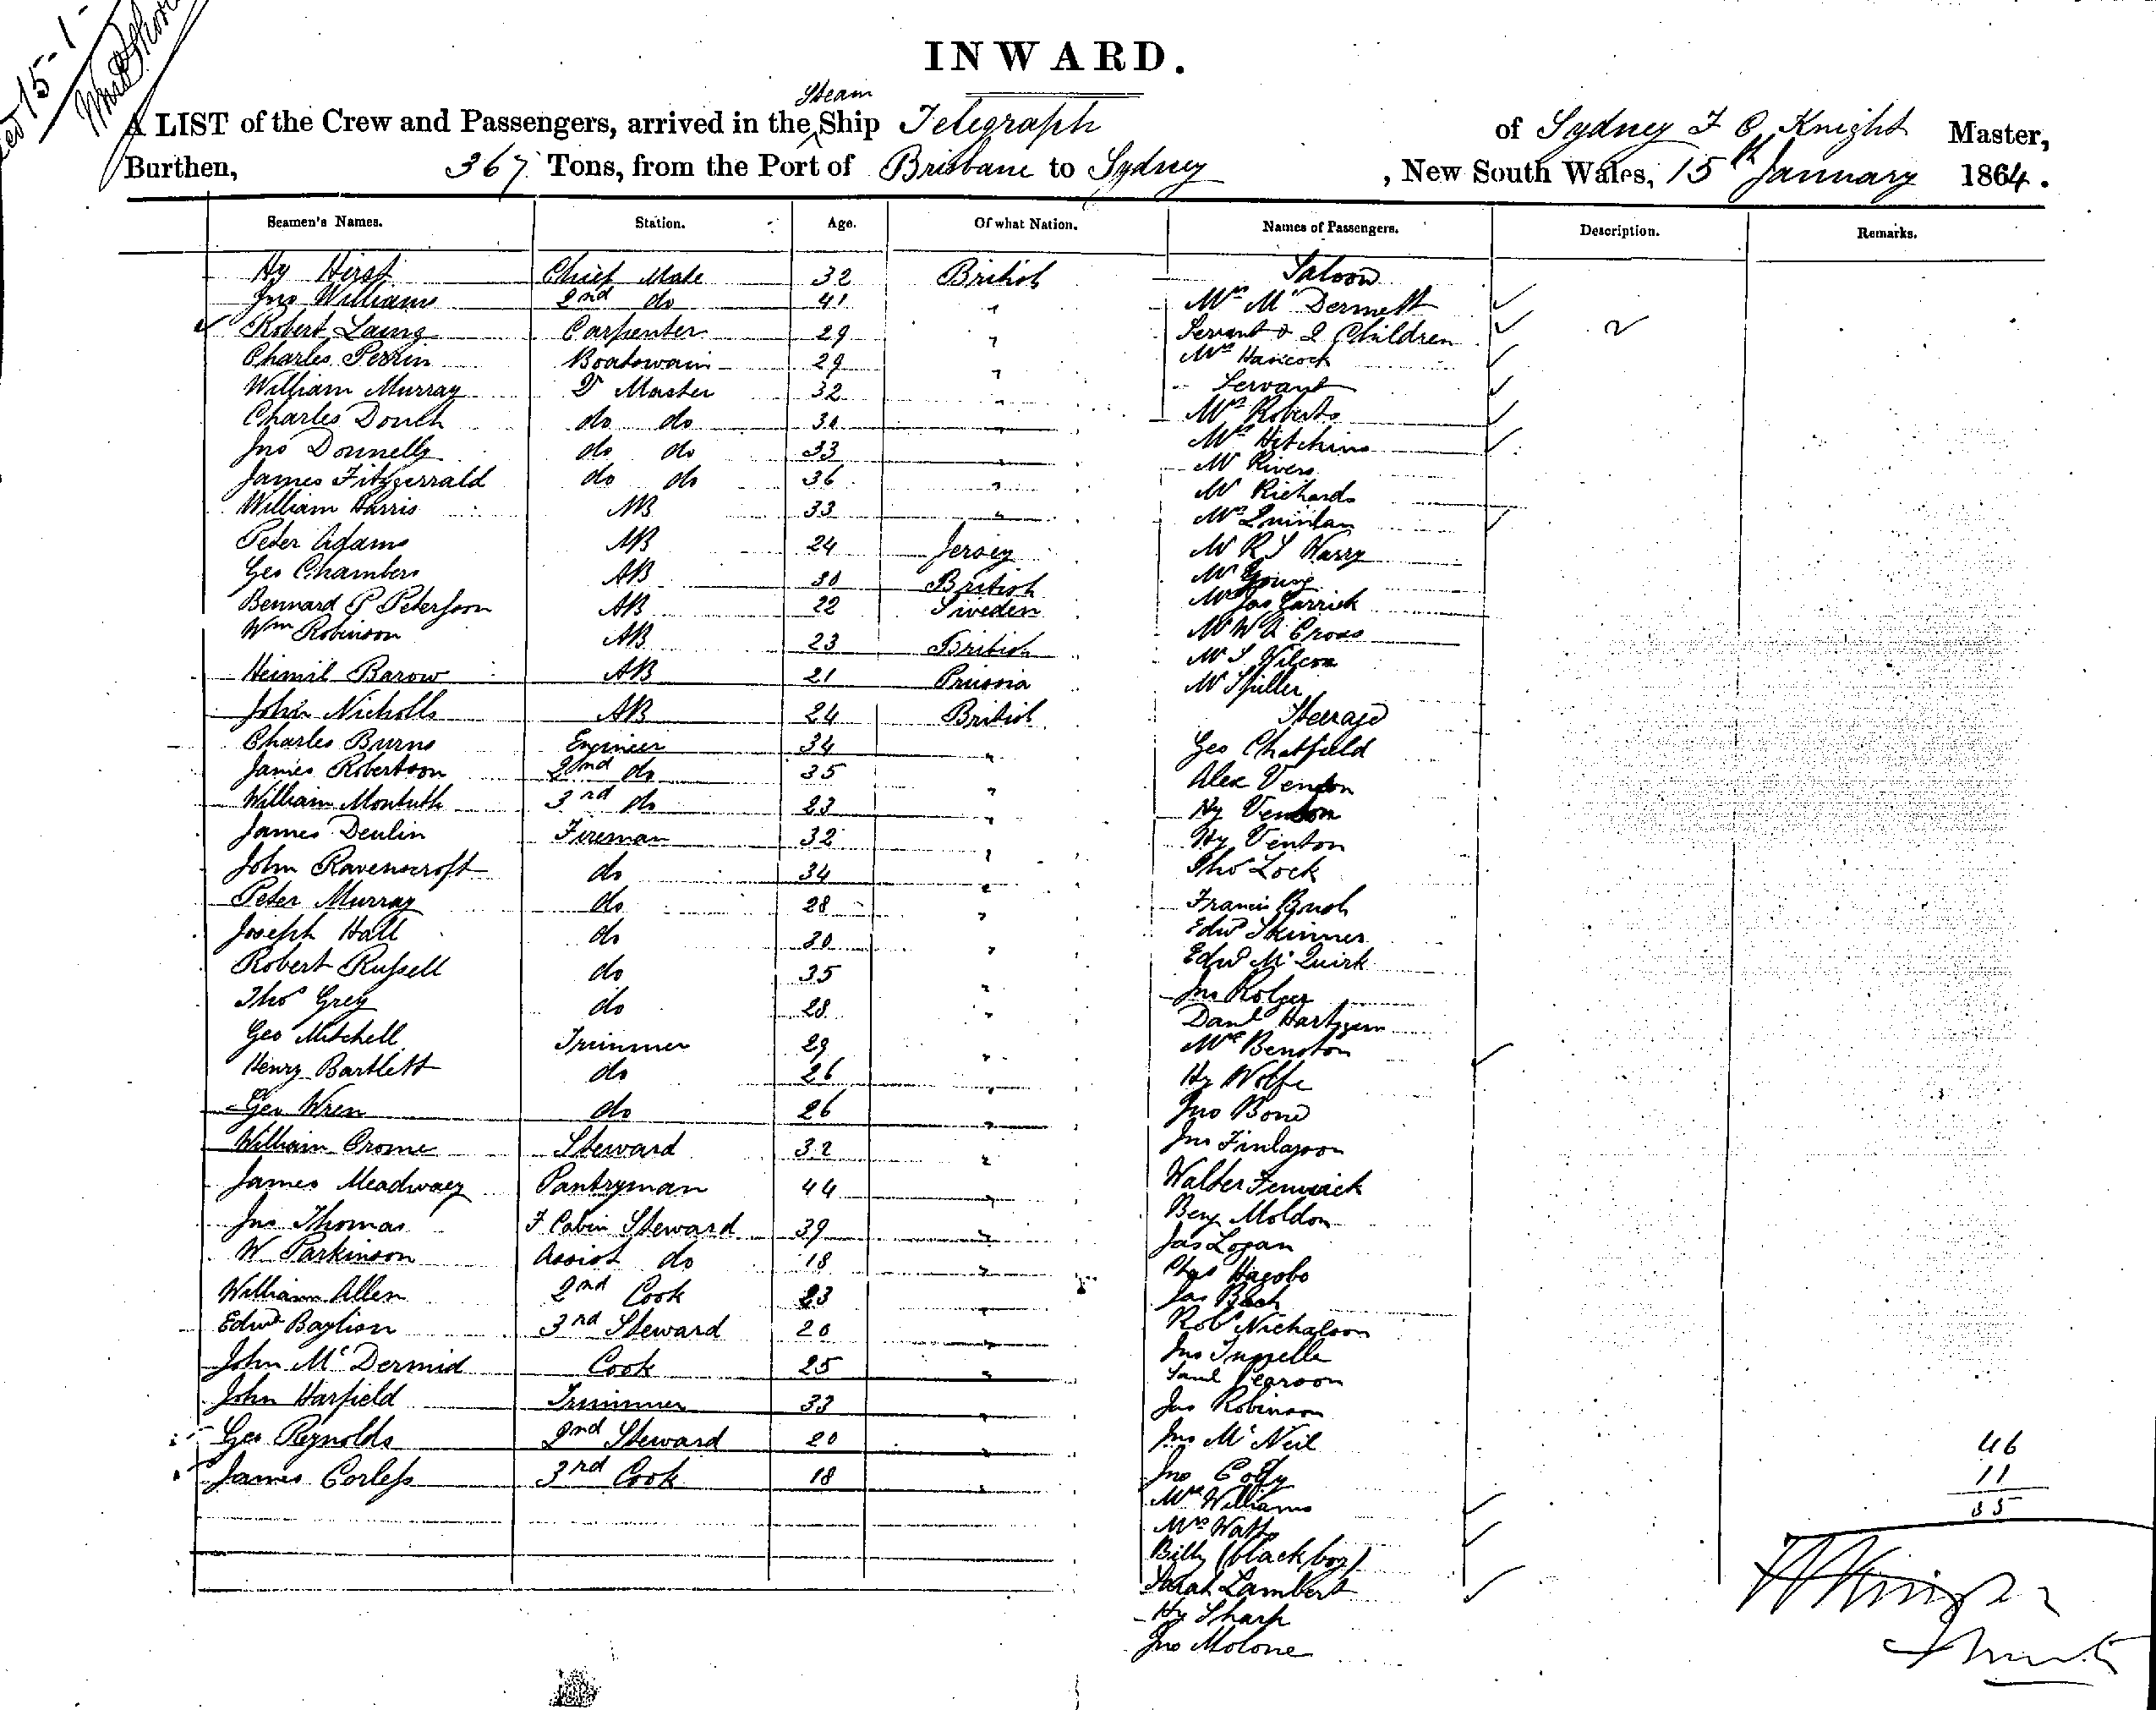 INWARD.
A LIST of the Crew and Passengers, arrived in the Steam Ship Telegraph of Sydney F C Knight Master,
Burthen, 367 Tons, from the Port of Brisbane to Sydney, New South Wales, 15th January 1864.
Seamen's Names. Station. Age. Of what Nation. Names of Passengers. Description. Remarks.
Hy Hirst Chief Mate 32 British Saloon
Jno Williams 2nd do 41 " Mrs McDermott
Robert Laing Carpenter 29 " Servant & 2 Children 2
Charles Perrin Boatswain 29 " Mrs Hancock
William Murray Qr Master 32 " Servant
Charles Douch do do 30 " Mrs Roberts
Jno Donnelly do do 33 " Mrs Hitchins
James Fitzgerrald do do 36 " Mr Rivers
William Harris AB 33 " Mr Richards
Mrs Quinlan
Peter Adams AB 24 Jersey Mr R S Warry
Geo Chambers AB 30 British Mr Young
Bennard P Peterson AB 22 Sweden Mr Jas Garrick
Wm Robinson AB 23 British Mr W Cross
Barow AB 21 Prussia Mr S Wilcox
John Nicholls AB 24 British Mr Spiller
Steerage
Charles Burns Engineer 34 " Geo Chatfield
James Robertson 2nd do 35 " Alex Venton
William Montuth 3rd do 23 " Hy Venton
James Deulin Fireman 32 " Hy Venton
John Ravenscroft do 34 " Thos Lock
Peter Murray do 28 " Francis Bush
Joseph Hall do 30 " Edwd Skinner
Robert Russell do 35 " Edwd McQuirk
Thos Grey do 28 " Jno Rolger
Danl
Geo Mitchell Trimmer 29 " Mrs Benston
Henry Bartlett do 26 " Hy Wolfe
Geo Wren do 26 " Jno Bond
William Crome Steward 32 " Jno Finlayson
James Meadway Pantryman 44 " Walter Fenwick
Benj Moldon
Jno Thomas F Cabin Steward 39 " Jas Logan
W Parkinson Assist do 18 " Chas
William Allen 2nd Cook 23 " Jas Bach
Edwd Baylion 3rd Steward 20 " Robt Nicholson
Jno
John McDermid Cook 25 " Saml Pearson
John Harfield Trimmer 33 " Jas Robinson
Geo Reynolds 2nd Steward 20 " Jno McNeil
James Corless 3rd Cook 18 " Jno
Mrs Williams
Mrs Watts
Billy (black boy)
Sarah Lambert
Hy Sharp
Jno Molone
46
11
35